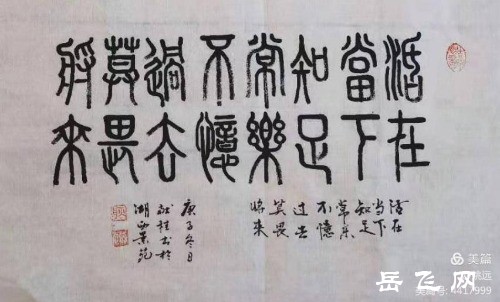 活在
當下
知足
常樂
不憶
過去
莫畏
將來
活在
当下
知足
常乐
不憶
过去
莫畏
将来
庚子冬日
书於
湖
苑
美篇
远
美篇号: 4417999
岳飞网